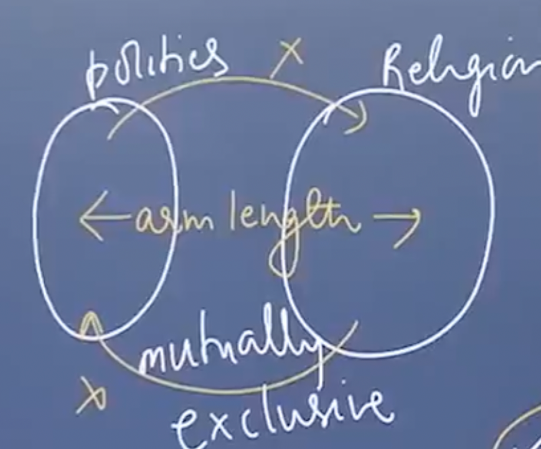 politics
x
Religion
← arm length →
mutually
x
exclusive